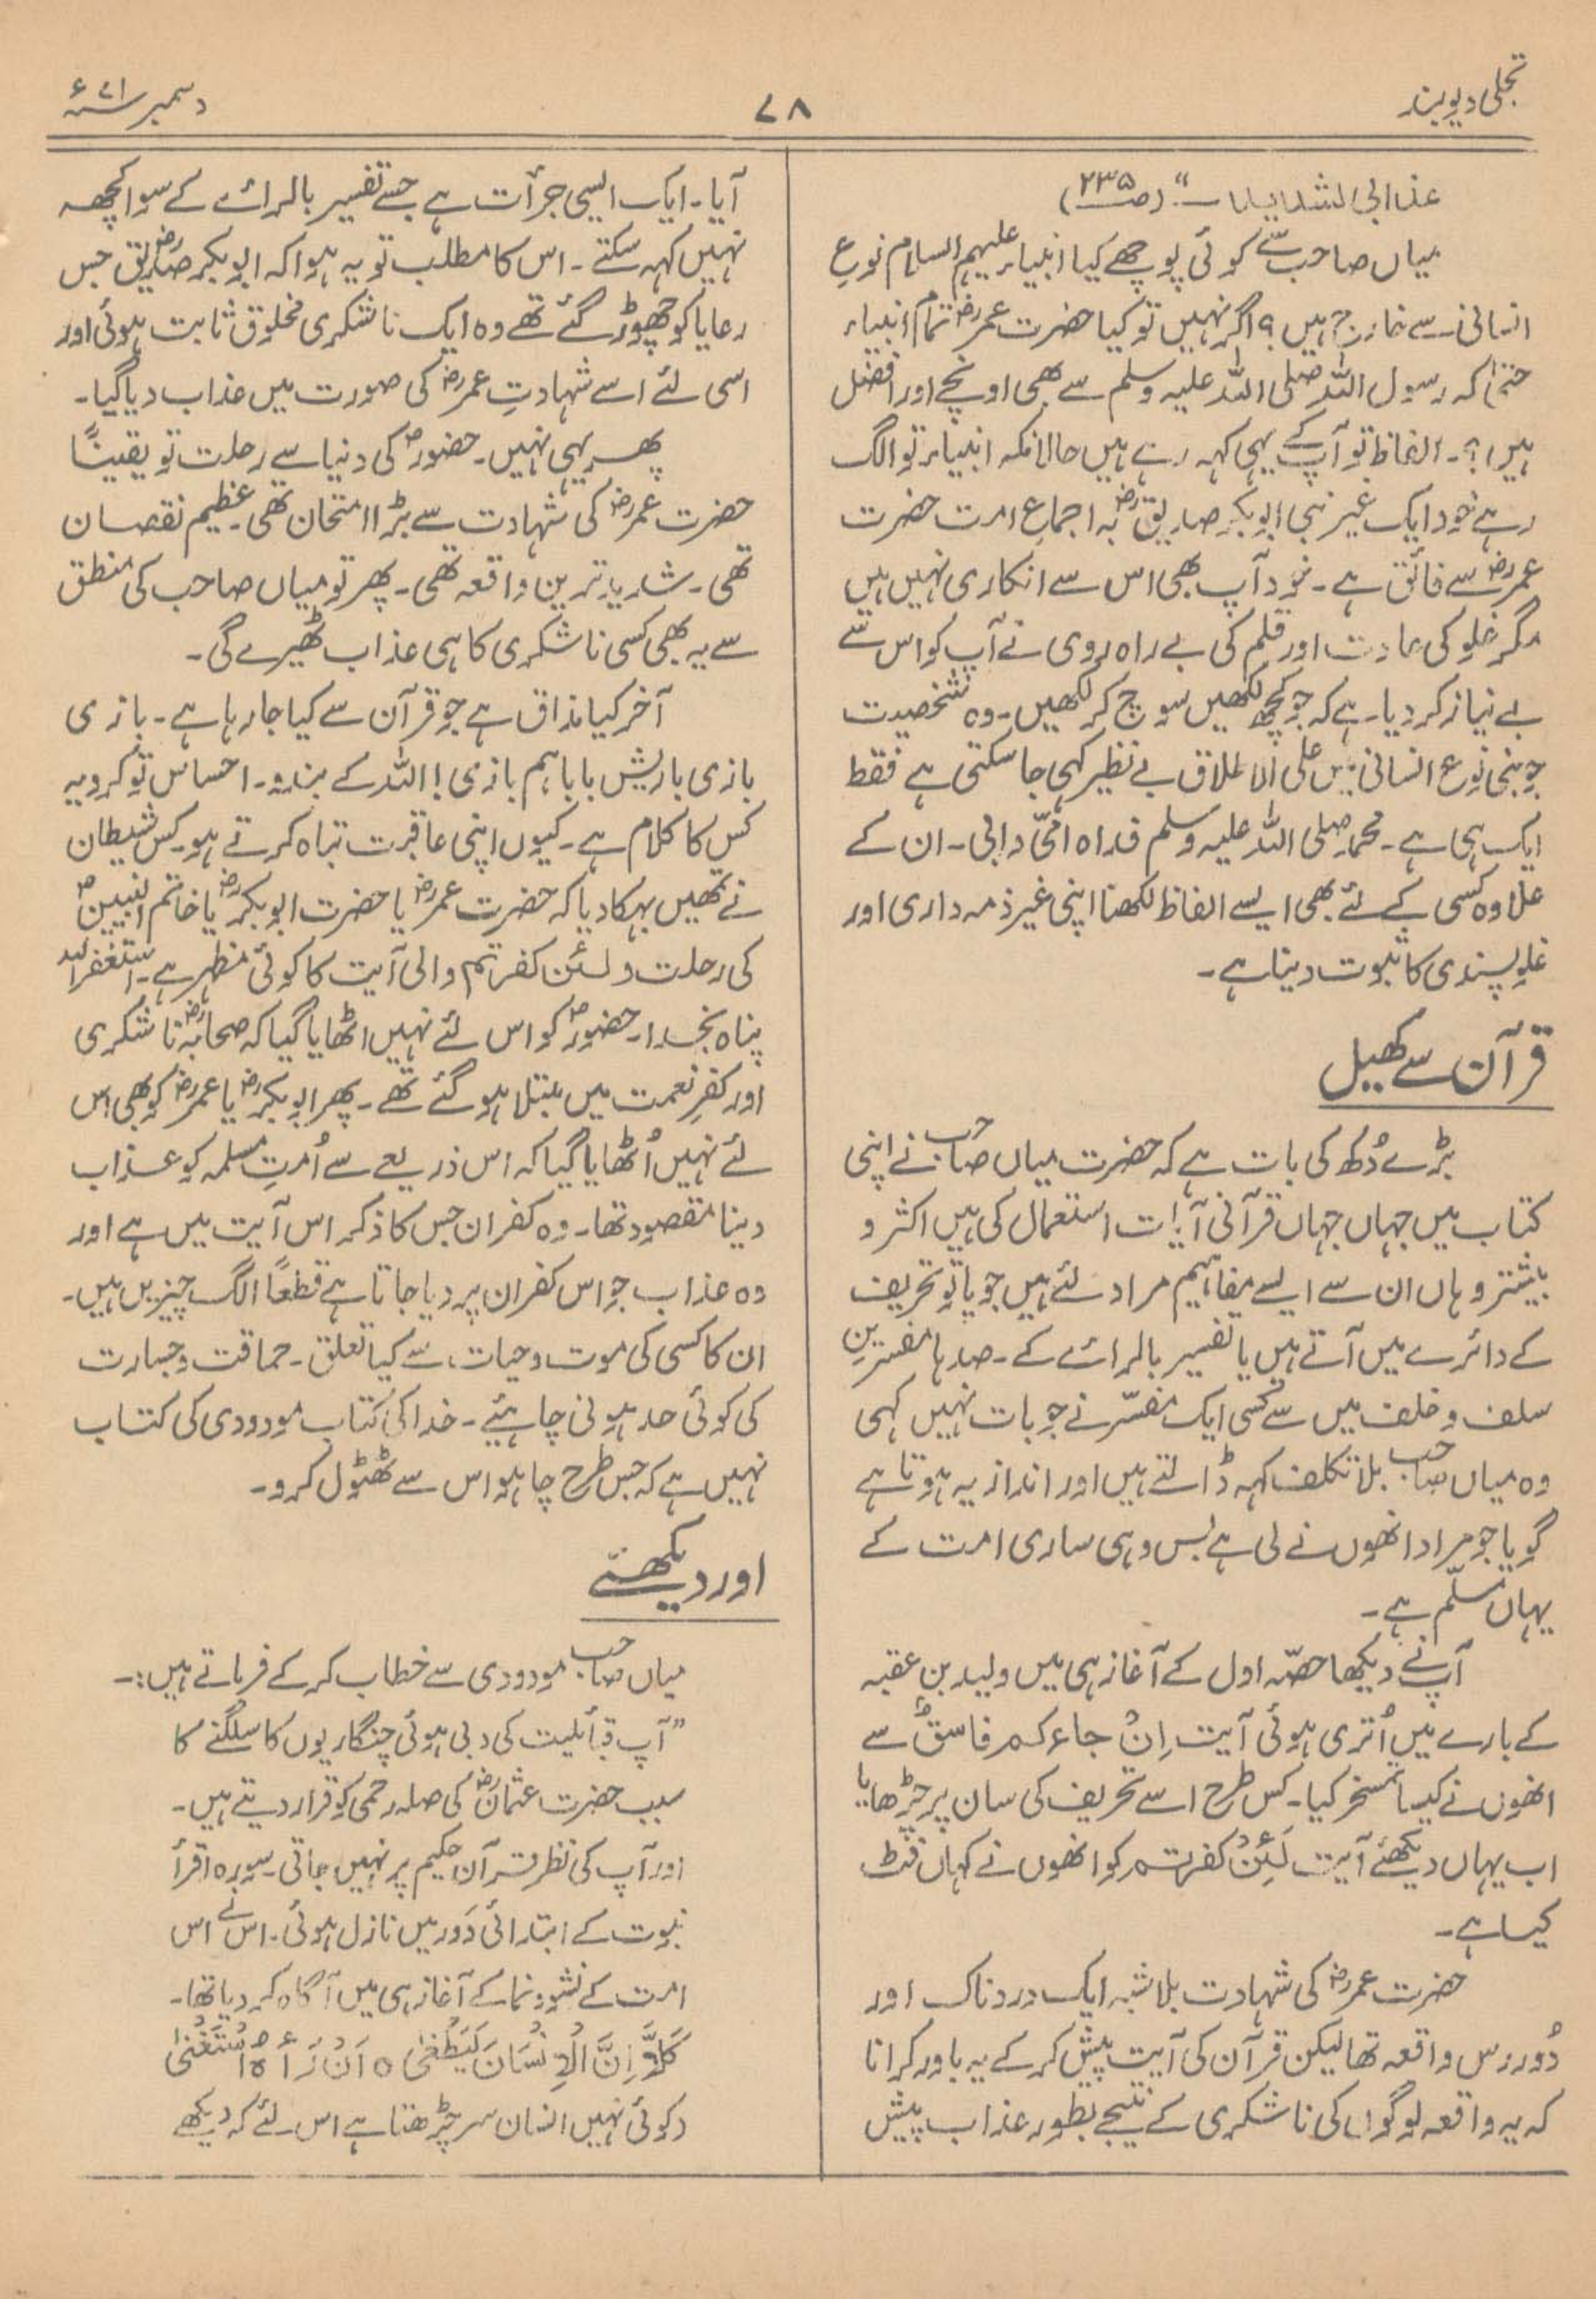 تجلی دیوبند
۷۸
دسمبر ۷۱ء
عذابی لشدید۔" (ص۲۳۵)
میاں صاحب سے کوئی پوچھے کیا انبیاء علیہم السلام نوعِ
انسانی سے خارج ہیں؟ اگر نہیں تو کیا حضرت عمرؓ تمام انبیاء
حتیٰ کہ رسول اللہ صلی اللہ علیہ وسلم سے بھی اونچے اور افضل
ہیں؟۔ الفاظ تو آپ کے یہی کہہ رہے ہیں حالانکہ انبیاء تو الگ
رہے خود ایک غیر نبی ابوبکر صدیقؓ بہ اجماعِ امت حضرت
عمرؓ سے فائق ہے۔ خود آپ بھی اس سے انکاری نہیں ہیں
مگر غلو کی عادت اور قلم کی بے راہ روی نے آپ کو اس سے
بے نیاز کر دیا ہے کہ جو کچھ لکھیں سوچ کر لکھیں۔ وہ شخصیت
جو بنی نوع انسانی میں علی الاطلاق بے نظیر کہی جا سکتی ہے فقط
ایک ہی ہے۔ محمد صلی اللہ علیہ وسلم فداہ امّی و ابی۔ ان کے
علاوہ کسی کے لئے بھی ایسے الفاظ لکھنا اپنی غیر ذمہ داری اور
غلو پسندی کا ثبوت دینا ہے۔
قرآن سے کھیل
بڑے دُکھ کی بات ہے کہ حضرت میاں صاحب نے اپنی
کتاب میں جہاں جہاں قرآنی آیات استعمال کی ہیں اکثر و
بیشتر وہاں ان سے ایسے مفاہیم مراد لئے ہیں جو یا تو تحریف
کے دائرے میں آتے ہیں یا تفسیر بالرائے کے۔ صدہا مفسرینِ
سلف و خلف میں سے کسی ایک مفسّر نے جو بات نہیں کہی
وہ میاں صاحب بلا تکلف کہہ ڈالتے ہیں اور انداز یہ ہوتا ہے
گویا جو مراد انھوں نے لی ہے بس وہی ساری امت کے
یہاں مسلّم ہے۔
آپ نے دیکھا حصّہ اول کے آغاز ہی میں ولید بن عقبہ
کے بارے میں اُتری ہوئی آیت اِنْ جاءکم فاسقٌ سے
انھوں نے کیسا تمسخر کیا۔ کس طرح اسے تحریف کی سان پر چڑھایا
اب یہاں دیکھئے آیت لَئِنْ کفرتم کو انھوں نے کہاں فٹ
کیا ہے۔
حضرت عمرؓ کی شہادت بلاشبہ ایک دردناک اور
دُوررس واقعہ تھا لیکن قرآن کی آیت پیش کر کے یہ باور کرانا
کہ یہ واقعہ لوگوں کی ناشکری کے نتیجے بطور عذاب پیش
آیا۔ ایک ایسی جرأت ہے جسے تفسیر بالرائے کے سوا کچھ
نہیں کہہ سکتے۔ اس کا مطلب تو یہ ہوا کہ ابوبکر صدیقؓ جس
رعایا کو چھوڑ گئے تھے وہ ایک ناشکری مخلوق ثابت ہوئی اور
اسی لئے اسے شہادتِ عمرؓ کی صورت میں عذاب دیا گیا۔
پھر یہی نہیں۔ حضورؐ کی دنیا سے رحلت تو یقیناً
حضرت عمرؓ کی شہادت سے بڑا امتحان تھی۔ عظیم نقصان
تھی۔ شدید ترین واقعہ تھی۔ پھر تو میاں صاحب کی منطق
سے یہ بھی کسی ناشکری کا ہی عذاب ٹھیرے گی۔
آخر کیا مذاق ہے جو قرآن سے کیا جا رہا ہے۔ بازی
بازی با ریش بابا ہم بازی! اللہ کے بندو۔ احساس تو کرو یہ
کس کا کلام ہے۔ کیوں اپنی عاقبت تباہ کرتے ہو۔ کس شیطان
نے تمھیں بہکا دیا کہ حضرت عمرؓ یا حضرت ابوبکرؓ یا خاتم النبیینؐ
کی رحلت ولئن کفرتم والی آیت کا کوئی مظہر ہے۔ استغفراللہ
پناہ بخدا۔ حضورؐ کو اس لئے نہیں اٹھایا گیا کہ صحابہؓ ناشکری
اور کفرِ نعمت میں مبتلا ہو گئے تھے۔ پھر ابوبکرؓ یا عمرؓ کو بھی اس
لئے نہیں اُٹھایا گیا کہ اس ذریعے سے اُمتِ مسلمہ کو عذاب
دینا مقصود تھا۔ وہ کفران جس کا ذکر اس آیت میں ہے اور
وہ عذاب جو اس کفران پر دیا جاتا ہے قطعاً الگ چیزیں ہیں۔
ان کا کسی کی موت و حیات سے کیا تعلق۔ حماقت و جسارت
کی کوئی حد ہونی چاہئیے۔ خدا کی کتاب مودودی کی کتاب
نہیں ہے کہ جس طرح چاہو اس سے ٹھٹول کرو۔
اور دیکھئے
میاں صاحب مودودی سے خطاب کر کے فرماتے ہیں:۔
"آپ قبائلیت کی دبی ہوئی چنگاریوں کا سلگنے کا
سبب حضرت عثمانؓ کی صلہ رحمی کو قرار دیتے ہیں۔
اور آپ کی نظر قرآن حکیم پر نہیں جاتی۔ سورہ اقرأ
نبوت کے ابتدائی دَور میں نازل ہوئی۔ اس نے اس
امت کے نشو و نما کے آغاز ہی میں آگاہ کر دیا تھا۔
کَلَّا اِنَّ الْاِنْسَانَ لَیَطْغٰی ہ اَنْ رَاٰہُ اسْتَغْنٰی
(کوئی نہیں انسان سر چڑھتا ہے اس لئے کہ دیکھے